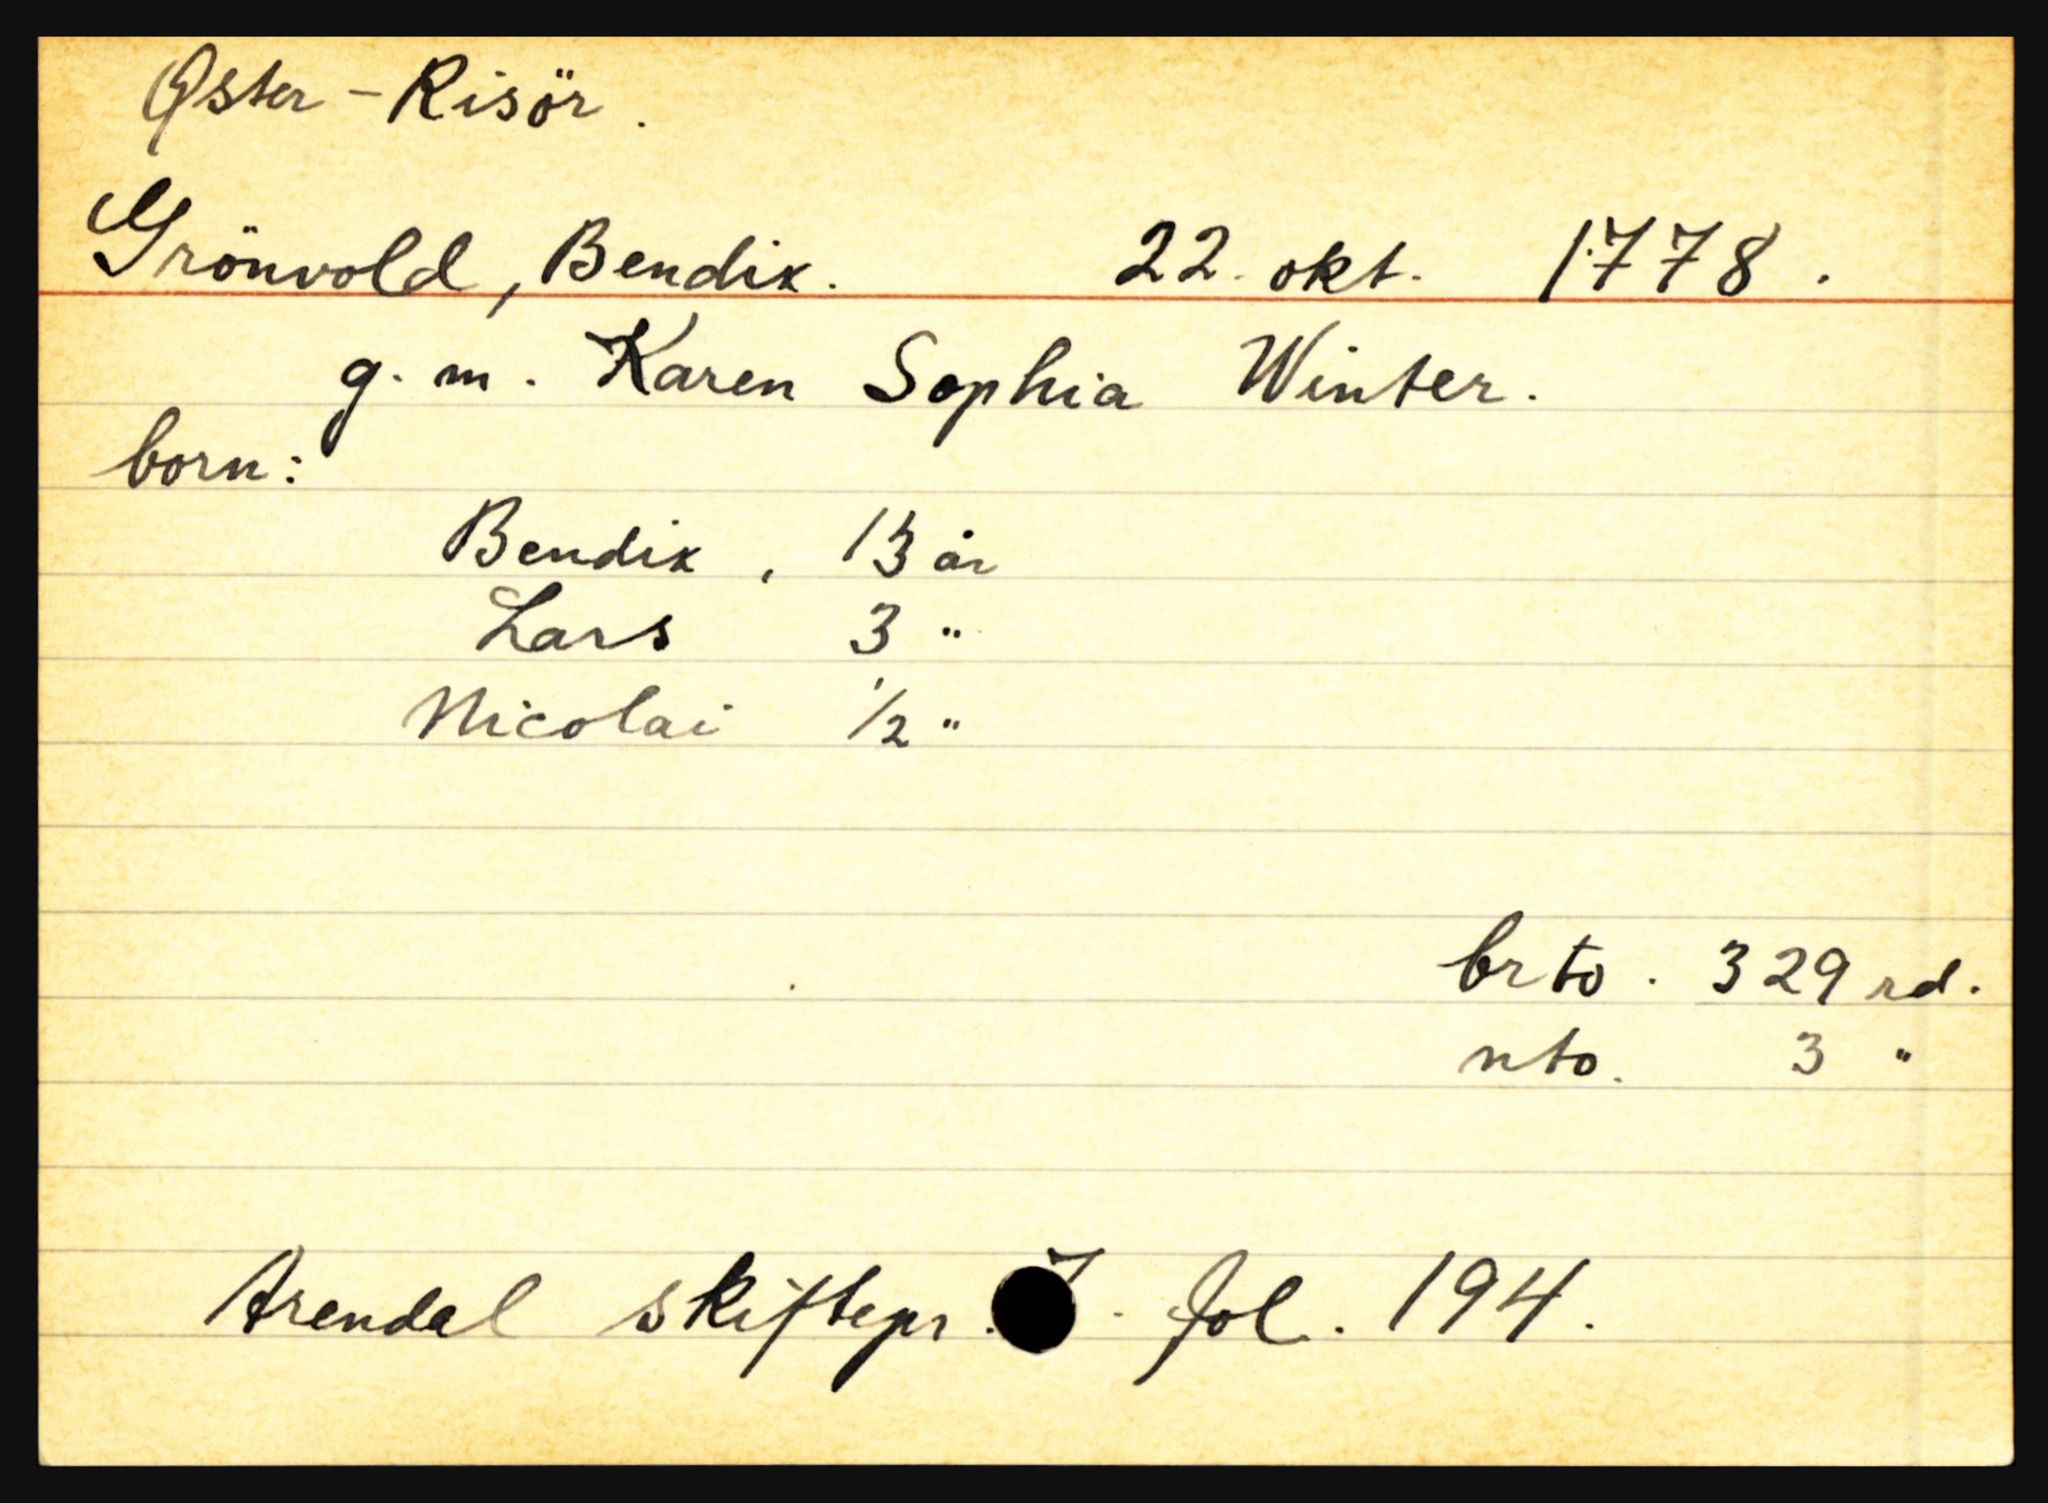 Øster - Risör.
Grönvold, Bendix. 22. okt. 1778.
g. m. Karen Sophia Winter.
born:
Bendix, 13 år
Lars 3 "
Nicolai 1/2 "
brto. 329 rd.
nto. 3 "
Arendal skiftepr. 7. fol. 194.